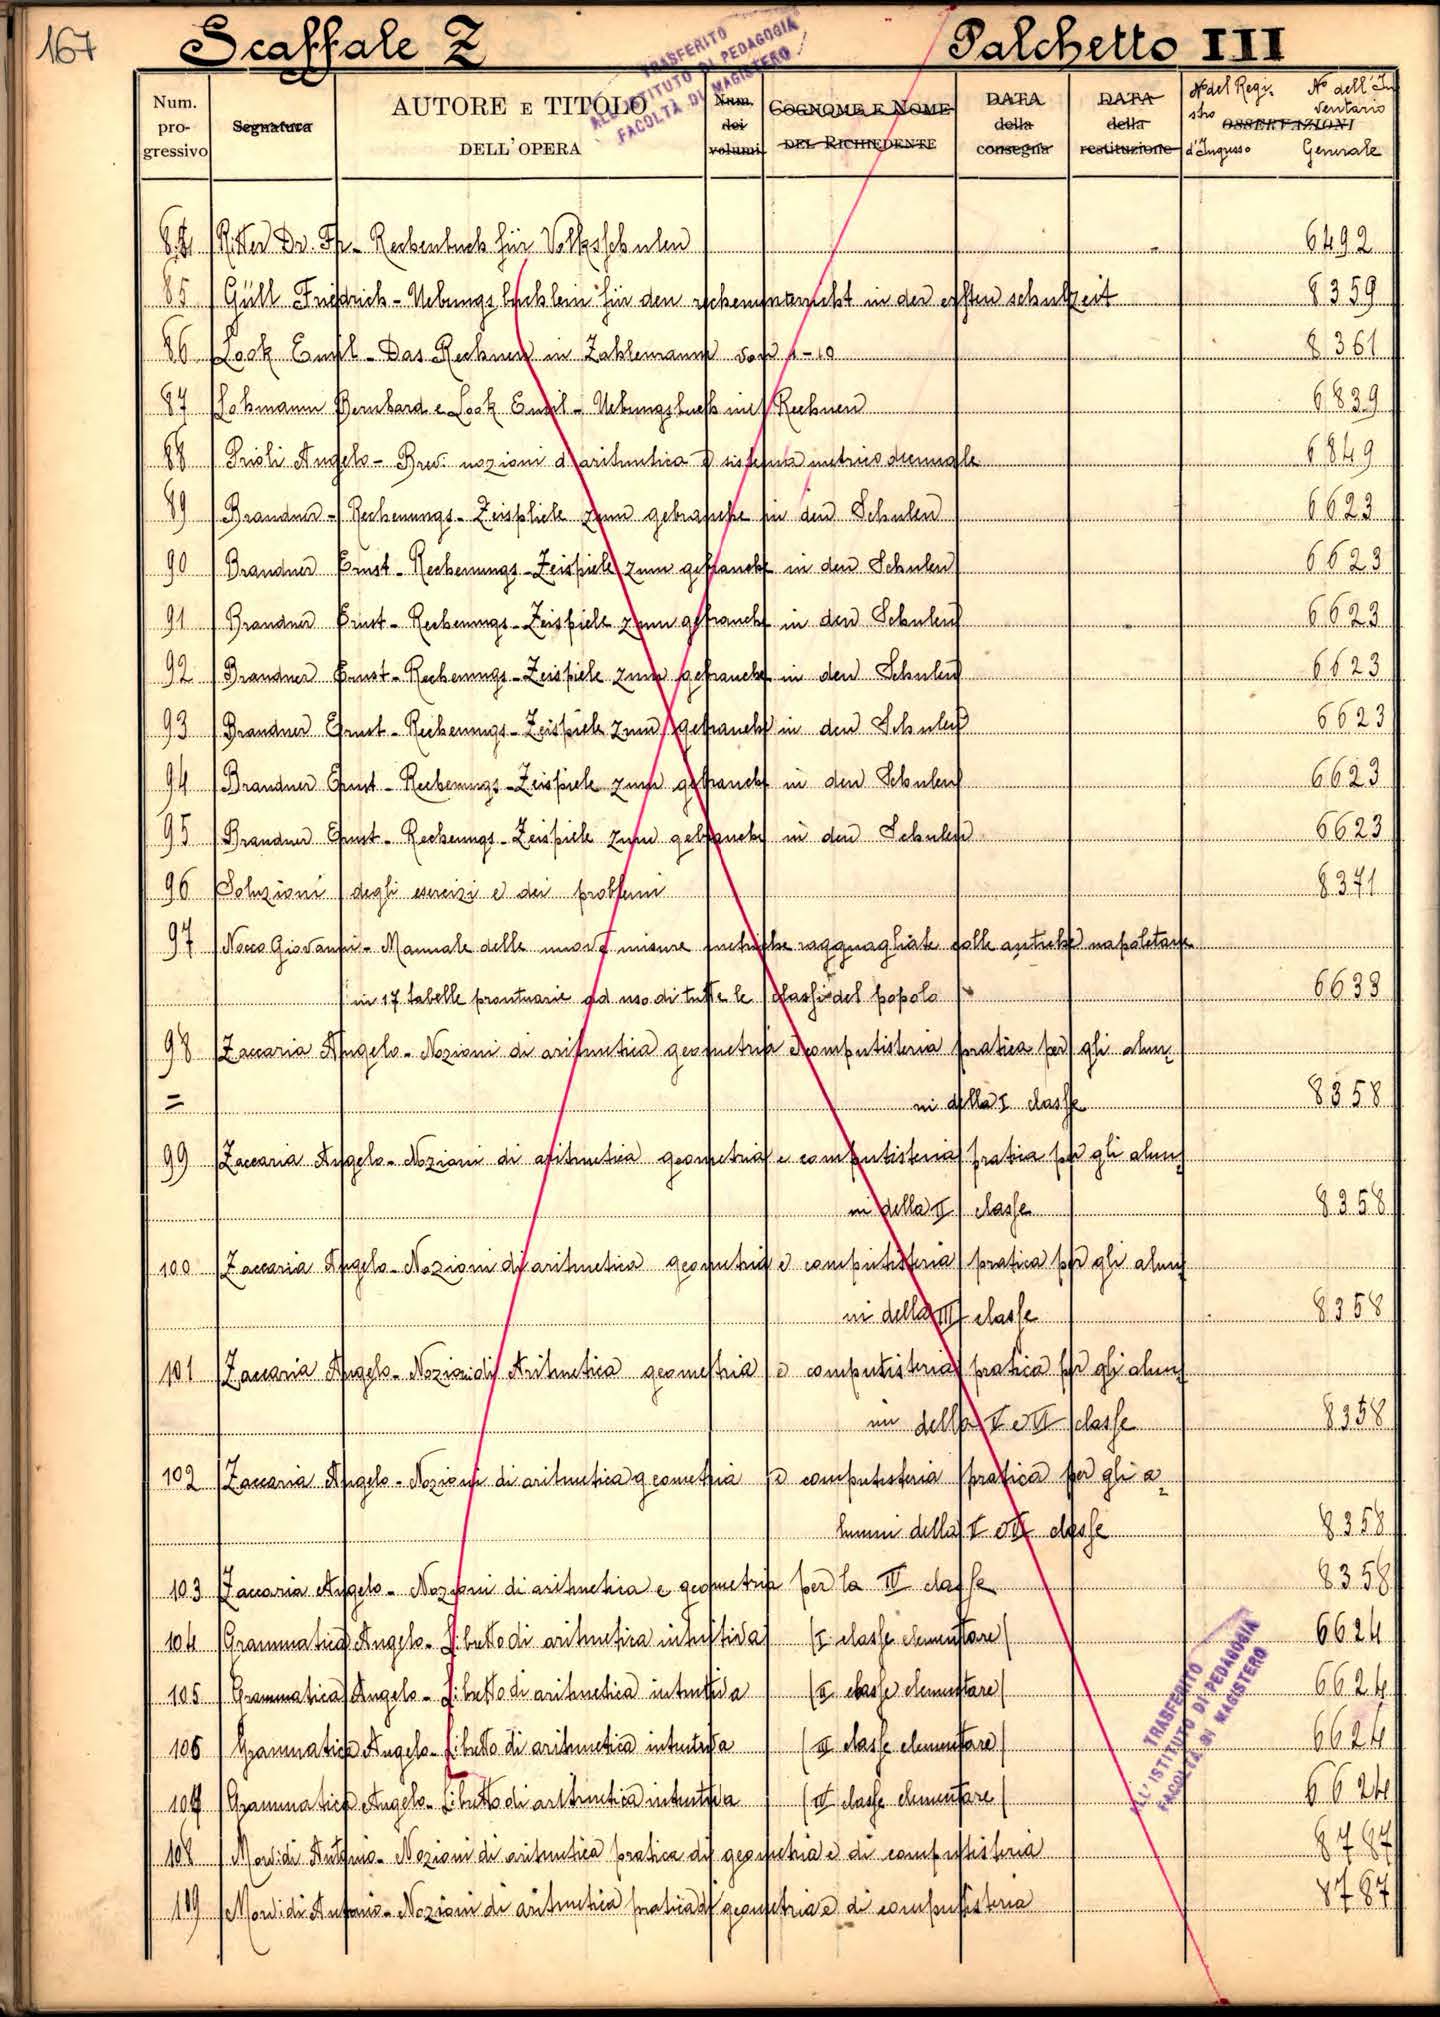 167 Scaffale Z Palchetto III
TRASFERITO
ALL'ISTITUTO DI PEDAGOGIA
FACOLTÀ DI MAGISTERO
Num. progressivo Segnatura AUTORE E TITOLO DELL'OPERA Num. dei volumi COGNOME E NOME DEL RICHIEDENTE DATA della consegna DATA della restituzione OSSERVAZIONI N° del Registro d'Ingresso N° dell'Inventario Generale
84 Ritter Dr. Fr. - Rechenbuch für Volksschulen 6492
85 Güll Friedrich - Uebungsbuchlein für den rechenunterricht in der ersten schulzeit 8359
86 Look Emil - Das Rechnen in Zahlenraum von 1-10 8361
87 Lohmann Bernhard e Look Emil - Uebungsbuch in Rechnen 6839
88 Prioli Angelo - Brev. nozioni d'aritmetica e sistema metrico decimale 6849
89 Brandner - Rechenungs - Zeispiele zum gebrauche in den Schulen 6623
90 Brandner Ernst - Rechenungs - Zeispiele zum gebrauche in den Schulen 6623
91 Brandner Ernst - Rechenungs - Zeispiele zum gebrauche in den Schulen 6623
92 Brandner Ernst - Rechenungs - Zeispiele zum gebrauche in den Schulen 6623
93 Brandner Ernst - Rechenungs - Zeispiele zum gebrauche in den Schulen 6623
94 Brandner Ernst - Rechenungs - Zeispiele zum gebrauche in den Schulen 6623
95 Brandner Ernst - Rechenungs - Zeispiele zum gebrauche in den Schulen 6623
96 Soluzioni degli esercizi e dei problemi 8371
97 Nocco Giovanni - Manuale delle nuove misure metriche ragguagliate colle antiche napoletane
in 17 tabelle prontuarie ad uso di tutte le classi del popolo 6633
98 Zaccaria Angelo - Nozioni di aritmetica geometria e computisteria pratica per gli alun-
= ni della I classe 8358
99 Zaccaria Angelo - Nozioni di aritmetica geometria e computisteria pratica per gli alun-
ni della II classe 8358
100 Zaccaria Angelo - Nozioni di aritmetica geometria e computisteria pratica per gli alun-
ni della III classe 8358
101 Zaccaria Angelo - Nozioni di Aritmetica geometria e computisteria pratica per gli alun-
ni della V e VI classe 8358
102 Zaccaria Angelo - Nozioni di aritmetica geometria e computisteria pratica per gli a-
lunni della V e VI classe 8358
103 Zaccaria Angelo - Nozioni di aritmetica e geometria per la IV classe 8358
104 Grammatica Angelo - Libretto di aritmetica intuitiva (I classe elementare) 6624
105 Grammatica Angelo - Libretto di aritmetica intuitiva (II classe elementare) 6624
106 Grammatica Angelo - Libretto di aritmetica intuitiva (III classe elementare) 6624
107 Grammatica Angelo - Libretto di aritmetica intuitiva (IV classe elementare) 6624
108 Antonio - Nozioni di aritmetica pratica di geometria e di computisteria 8787
109 Antonio - Nozioni di aritmetica pratica di geometria e di computisteria 8787
TRASFERITO
ALL'ISTITUTO DI PEDAGOGIA
FACOLTÀ DI MAGISTERO